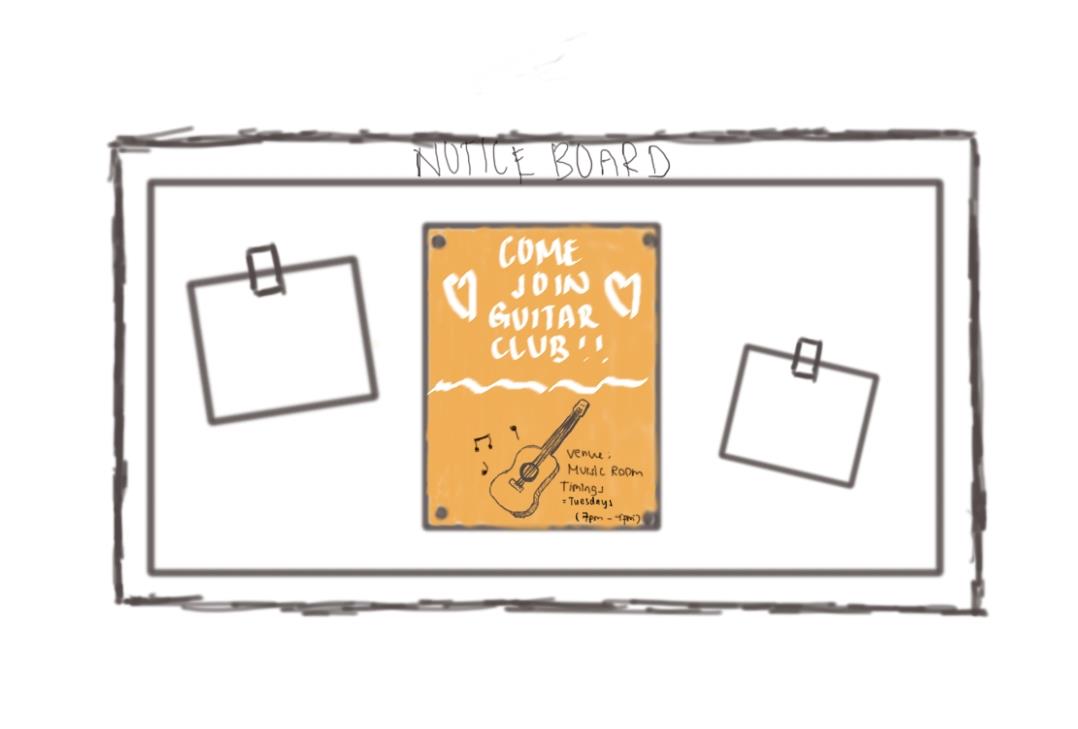 NOTICE BOARD
COME
JOIN
GUITAR
CLUB!!
Venue:
Music Room
Timings
= Tuesdays
(7pm -